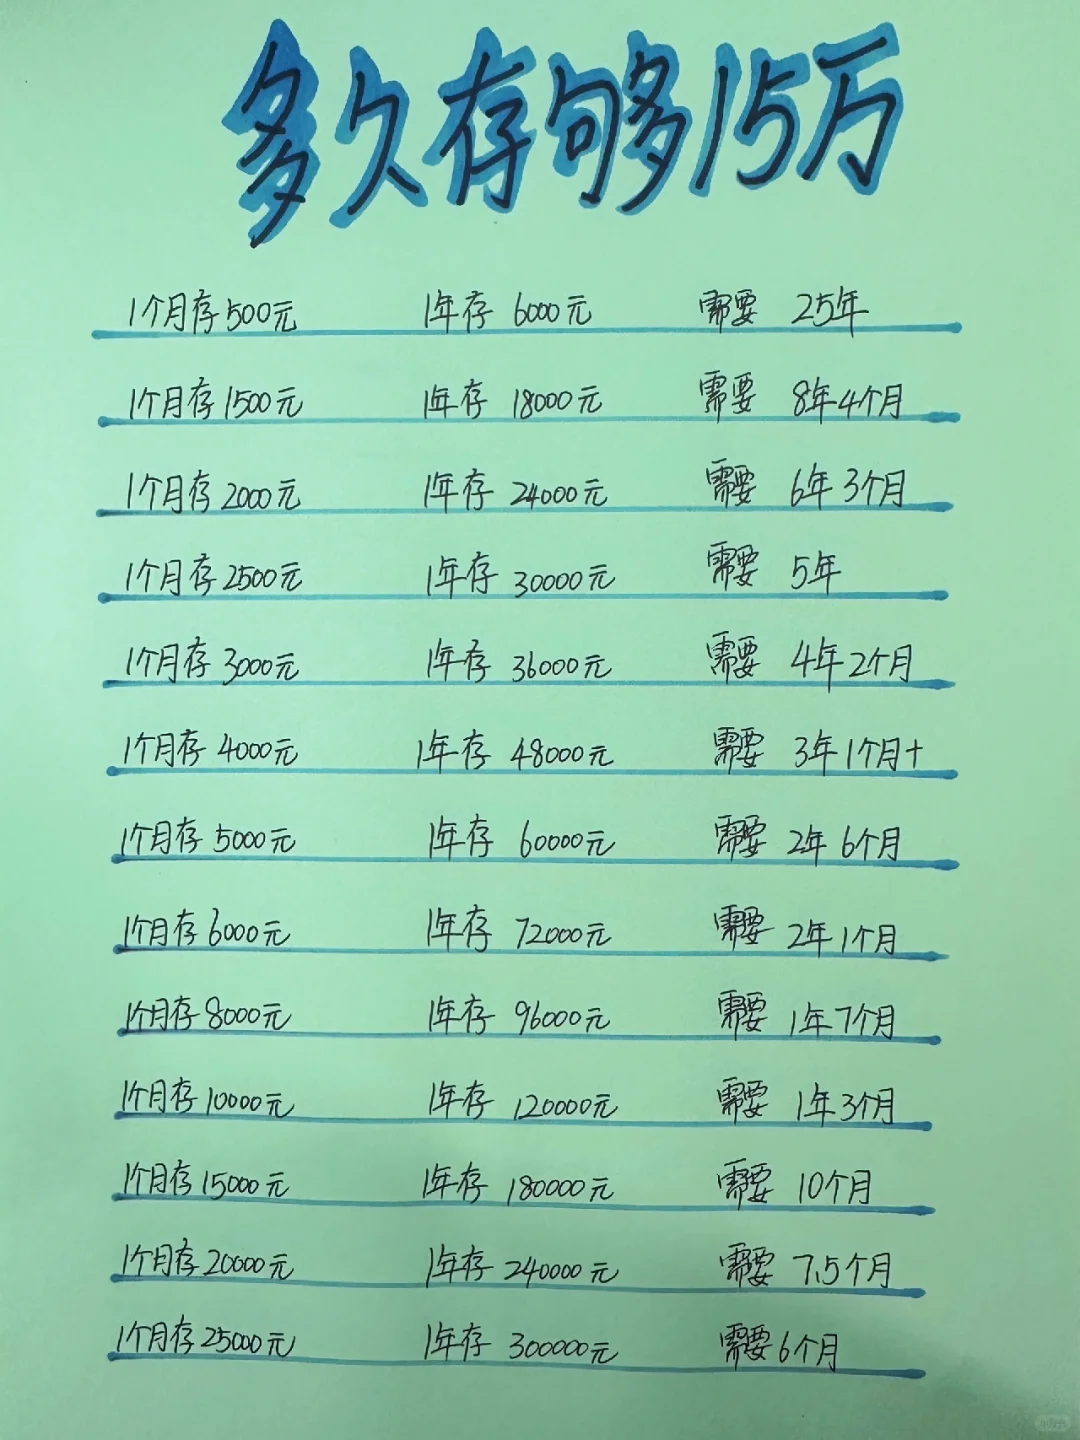 多久存够多15万
1个月存500元 1年存 6000元 需要 25年
1个月存1500元 1年存 18000元 需要 8年4个月
1个月存2000元 1年存 24000元 需要 6年3个月
1个月存2500元 1年存 30000元 需要 5年
1个月存3000元 1年存 36000元 需要 4年2个月
1个月存4000元 1年存 48000元 需要 3年1个月+
1个月存5000元 1年存 60000元 需要 2年6个月
1个月存6000元 1年存 72000元 需要 2年1个月
1个月存8000元 1年存 96000元 需要 1年7个月
1个月存10000元 1年存 120000元 需要 1年3个月
1个月存15000元 1年存 180000元 需要 10个月
1个月存20000元 1年存 240000元 需要 7.5个月
1个月存25000元 1年存 300000元 需要6个月